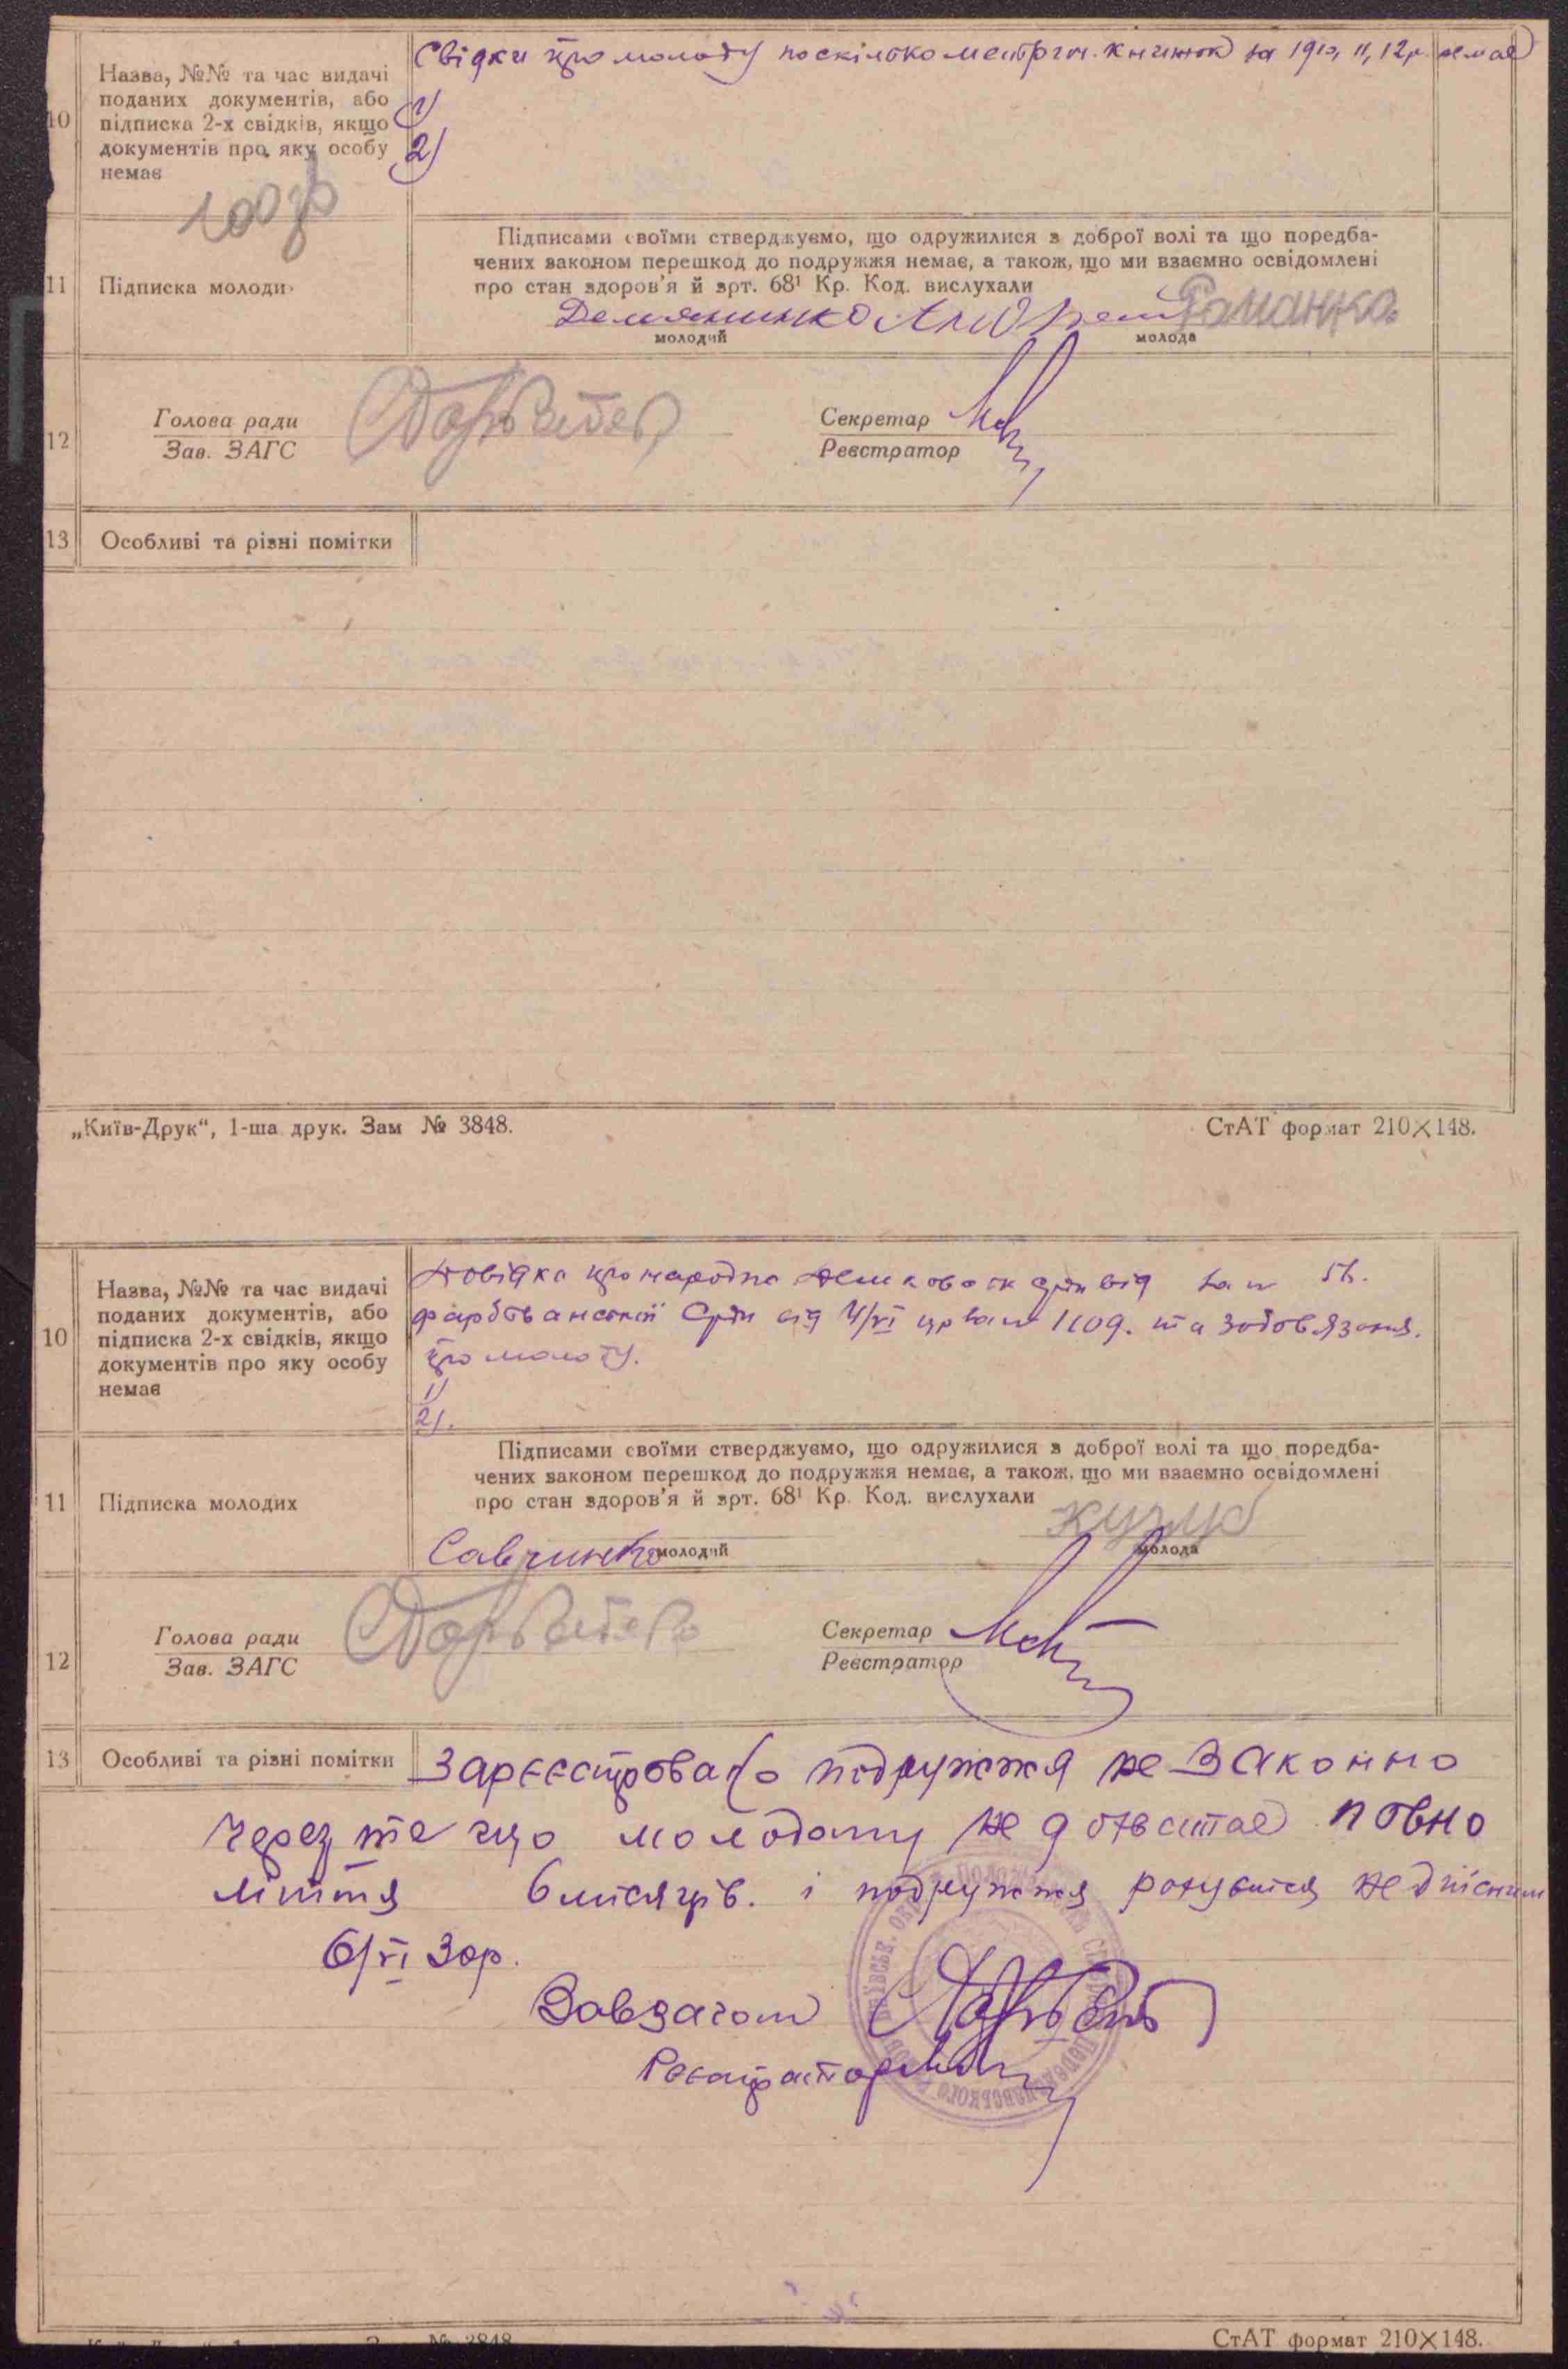 10
Назва, №№ та час видачі
поданих документів, або
підписка 2-х свідків, якщо
документів про яку особу
немає
Свідки про молоду поскілько метрич. книжок за 1910, 11, 12р. немає
1)
2)
11
Підписка молоди
Підписами своїми стверджуємо, що одружилися з доброї волі та що передба-
чених законом перешкод до подружжя немає, а також, що ми взаємно освідомлені
про стан здоров'я й арт. 68¹ Кр. Код. вислухали
Романко
молодий
молода
12
Голова ради
Зав. ЗАГС
Секретар
Реєстратор
13
Особливі та різні помітки
„Київ-Друк“, 1-ша друк. Зам № 3848.
СтАТ формат 210×148.
10
Назва, №№ та час видачі
поданих документів, або
підписка 2-х свідків, якщо
документів про яку особу
немає
Довідка про від за № 51.
від 4/VI за № 1109. та зобовязання.
про молоду.
1)
2).
11
Підписка молодих
Підписами своїми стверджуємо, що одружилися з доброї волі та що передба-
чених законом перешкод до подружжя немає, а також, що ми взаємно освідомлені
про стан здоров'я й арт. 68¹ Кр. Код. вислухали
Савченко
молодий
молода
12
Голова ради
Зав. ЗАГС
Секретар
Реєстратор
13
Особливі та різні помітки
Зареєстровано подружжя не законно
через те що молодому не дохватає повно
ліття 6 місяців. і подружжя рахувати недійсним
6/VI 30р.
Завзагсом
Реєстратор
№ 3848
СтАТ формат 210×148.